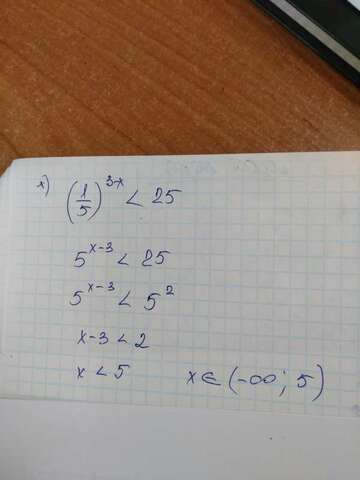 х) (1/5)^(3-x) < 25
5^(x-3) < 25
5^(x-3) < 5^2
x-3 < 2
x < 5 x ∈ (-∞; 5)